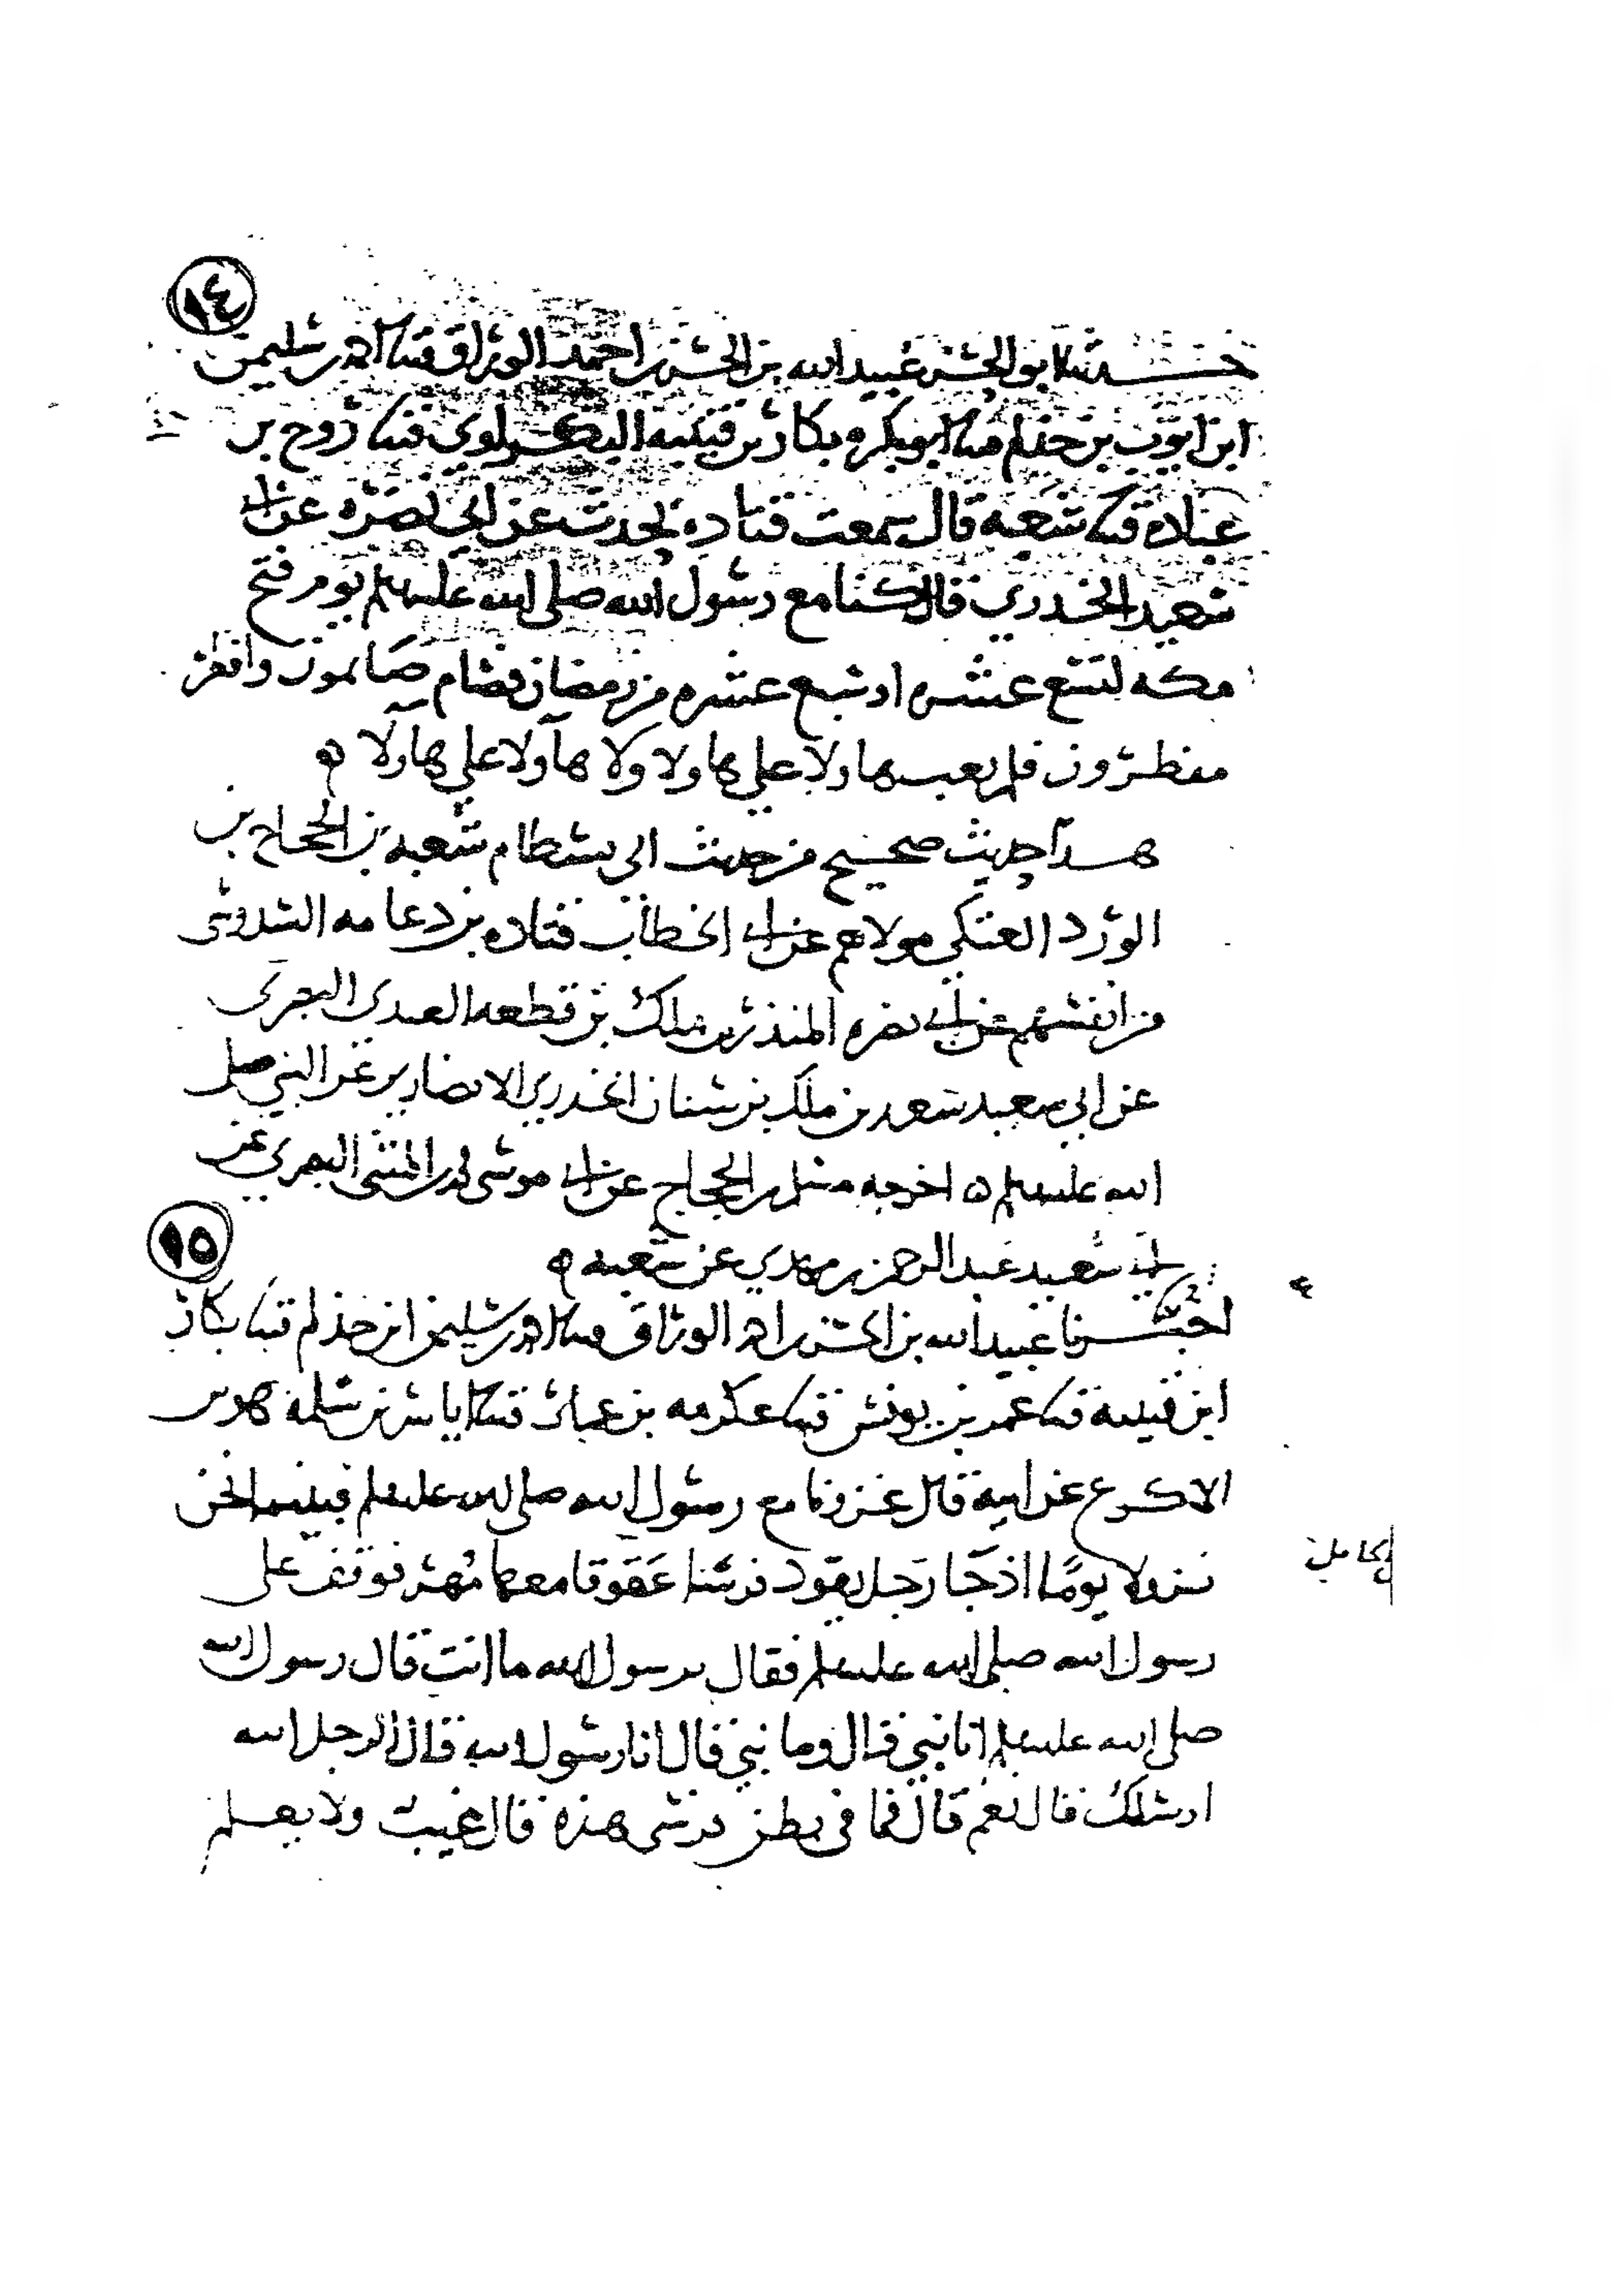 ١٤
حدثنا ابو الحسن عبيد الله بن الحسن بن احمد الوراق قثنا احمد بن سليمن
ابن ايوب بن حذلم قثنا ابو بكره بكار بن قتيبه البكراوي قثنا روح بن
عباده قثنا شعبه قال سمعت قتاده يحدث عن ابي نضره عن ابي
سعيد الخدري قال كنا مع رسول الله صلى الله عليه وسلم يوم فتح
مكه لتسع عشره او سبع عشره من رمضان فصام صائمون وافطر
مفطرون فلم يعب هاولا على هاولا ولا هآولا على هاولا ه
هذا حديث صحيح من حديث ابي بسطام شعبه بن الحجاج بن
الورد العتكي مولاهم عن ابي الخطاب قتاده بن دعامه السدوسي
من انفسهم عن ابي نضره المنذر بن ملك بن قطعه العبدي البصري
عن ابي سعيد سعد بن ملك بن سنان الخدري الانصاري عن النبي صلى
الله عليه وسلم ه اخرجه مسلم بن الحجاج عن ابي موسى محمد بن المثنى البصري عن
ابي سعيد عبد الرحمن بن مهدي عن شعبه ه
١٥
اخبرنا عبيد الله بن الحسن بن احمد الوراق قثنا احمد بن سليمن ابن حذلم قثنا بكار
ابن قتيبه قثنا عمر بن يونس قثنا عكرمه بن عمار قثنا اياس بن سلمه هو بن
الاكوع عن ابيه قال غزونا مع رسول الله صلى الله عليه وسلم فبينما نحن
نزولا يومًا اذ جا رجل يقود فرسا عَقوقا معها مُهر فوقف على
رسول الله صلى الله عليه وسلم فقال يرسول الله ما انت قال رسول الله
صلى الله عليه وسلم انا نبي قال وما نبي قال انا رسول الله قال الرجل الله
ارسلك قال نعم قال فما في بطن فرسي هذه قال غيب ولا يعلم